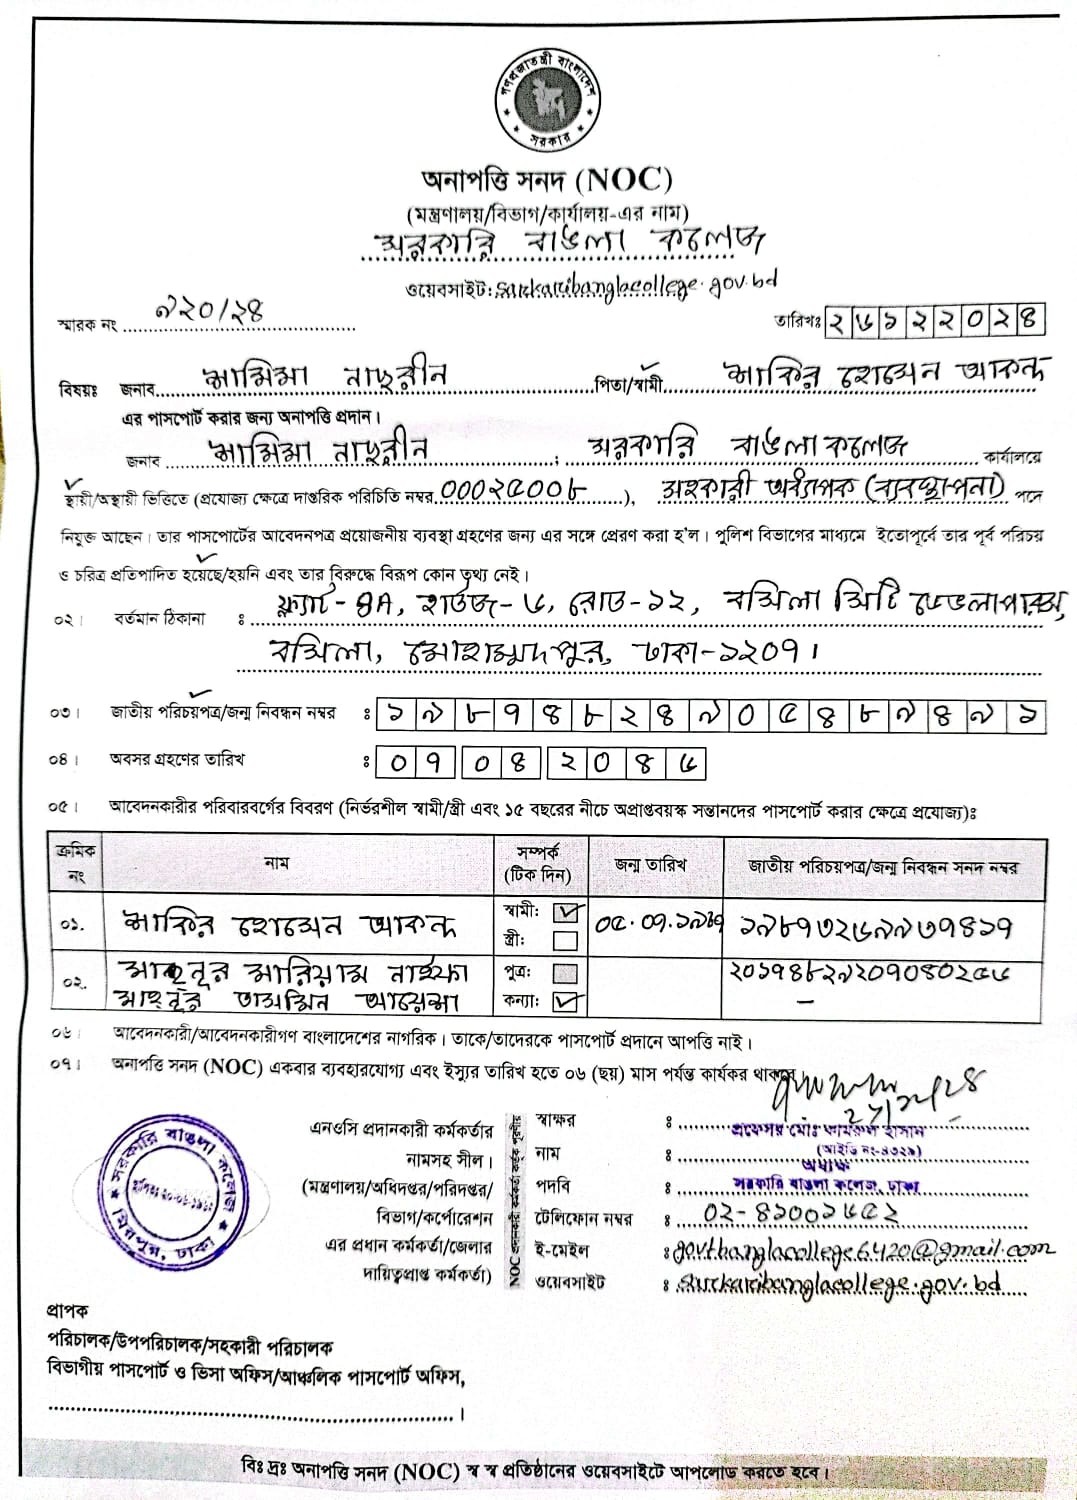 গণপ্রজাতন্ত্রী বাংলাদেশ
সরকার
অনাপত্তি সনদ (NOC)
(মন্ত্রণালয়/বিভাগ/কার্যালয়-এর নাম)
সরকারি বাঙলা কলেজ
ওয়েবসাইট: sarkaribanglacollege.gov.bd
স্মারক নং ৯২০/২৪
তারিখঃ ২৬১২২০২৪
বিষয়ঃ জনাব নাছরীন পিতা/স্বামী জাকির হোসেন আকন্দ
এর পাসপোর্ট করার জন্য অনাপত্তি প্রদান।
জনাব নাছরীন ; সরকারি বাঙলা কলেজ কার্যালয়ে
স্থায়ী/অস্থায়ী ভিত্তিতে (প্রযোজ্য ক্ষেত্রে দাপ্তরিক পরিচিতি নম্বর 000২৫00৮), সহকারী অধ্যাপক (ব্যবস্থাপনা) পদে
নিযুক্ত আছেন। তার পাসপোর্টের আবেদনপত্র প্রয়োজনীয় ব্যবস্থা গ্রহণের জন্য এর সঙ্গে প্রেরণ করা হ'ল। পুলিশ বিভাগের মাধ্যমে ইতোপূর্বে তার পূর্ব পরিচয়
ও চরিত্র প্রতিপাদিত হয়েছে/হয়নি এবং তার বিরুদ্ধে বিরূপ কোন তথ্য নেই।
০২। বর্তমান ঠিকানা : ফ্ল্যাট-৪A, হাউজ-৬, রোড-১২, বসিলা সিটি ডেভলাপারস,
বসিলা, মোহাম্মদপুর, ঢাকা-১২০৭।
০৩। জাতীয় পরিচয়পত্র/জন্ম নিবন্ধন নম্বর : ১৯৮৭৪৮২৪৯০৫৪৮৯৪৯১
০৪। অবসর গ্রহণের তারিখ : ০৭ ০৪ ২০৪৬
০৫। আবেদনকারীর পরিবারবর্গের বিবরণ (নির্ভরশীল স্বামী/স্ত্রী এবং ১৫ বছরের নীচে অপ্রাপ্তবয়স্ক সন্তানদের পাসপোর্ট করার ক্ষেত্রে প্রযোজ্য)ঃ
ক্রমিক নং নাম সম্পর্ক (টিক দিন) জন্ম তারিখ জাতীয় পরিচয়পত্র/জন্ম নিবন্ধন সনদ নম্বর
০১. জাকির হোসেন আকন্দ স্বামী: ✓ ০৫.০৭.১৯৮৭ ১৯৮৭৩২৬৯৯৩৭৪৮১৭
স্ত্রী:
০২. মাহনূর মারিয়াম নাইফা পুত্র: ২০১৭৪৮২৯২০৭০৪০২৫৬
মাহনূর তাসমিন আয়েশা কন্যা: ✓ –
০৬। আবেদনকারী/আবেদনকারীগণ বাংলাদেশের নাগরিক। তাকে/তাদেরকে পাসপোর্ট প্রদানে আপত্তি নাই।
০৭। অনাপত্তি সনদ (NOC) একবার ব্যবহারযোগ্য এবং ইস্যুর তারিখ হতে ০৬ (ছয়) মাস পর্যন্ত কার্যকর থাকবে।
সরকারি বাঙলা কলেজ
মিরপুর, ঢাকা
এনওসি প্রদানকারী কর্মকর্তার
নামসহ সীল।
(মন্ত্রণালয়/অধিদপ্তর/পরিদপ্তর/
বিভাগ/কর্পোরেশন
এর প্রধান কর্মকর্তা/জেলার
দায়িত্বপ্রাপ্ত কর্মকর্তা)
স্বাক্ষর :
নাম : প্রফেসর মোঃ কামরুল হাসান
(আইডি নং-৪৩২৯)
অধ্যক্ষ
পদবি : সরকারি বাঙলা কলেজ, ঢাকা
টেলিফোন নম্বর : ০২-৪১০০১৬৫২
ই-মেইল : govtbanglacollege6420@gmail.com
ওয়েবসাইট : sarkaribanglacollege.gov.bd
প্রাপক
পরিচালক/উপপরিচালক/সহকারী পরিচালক
বিভাগীয় পাসপোর্ট ও ভিসা অফিস/আঞ্চলিক পাসপোর্ট অফিস,
।
বিঃ দ্রঃ অনাপত্তি সনদ (NOC) স্ব স্ব প্রতিষ্ঠানের ওয়েবসাইটে আপলোড করতে হবে।